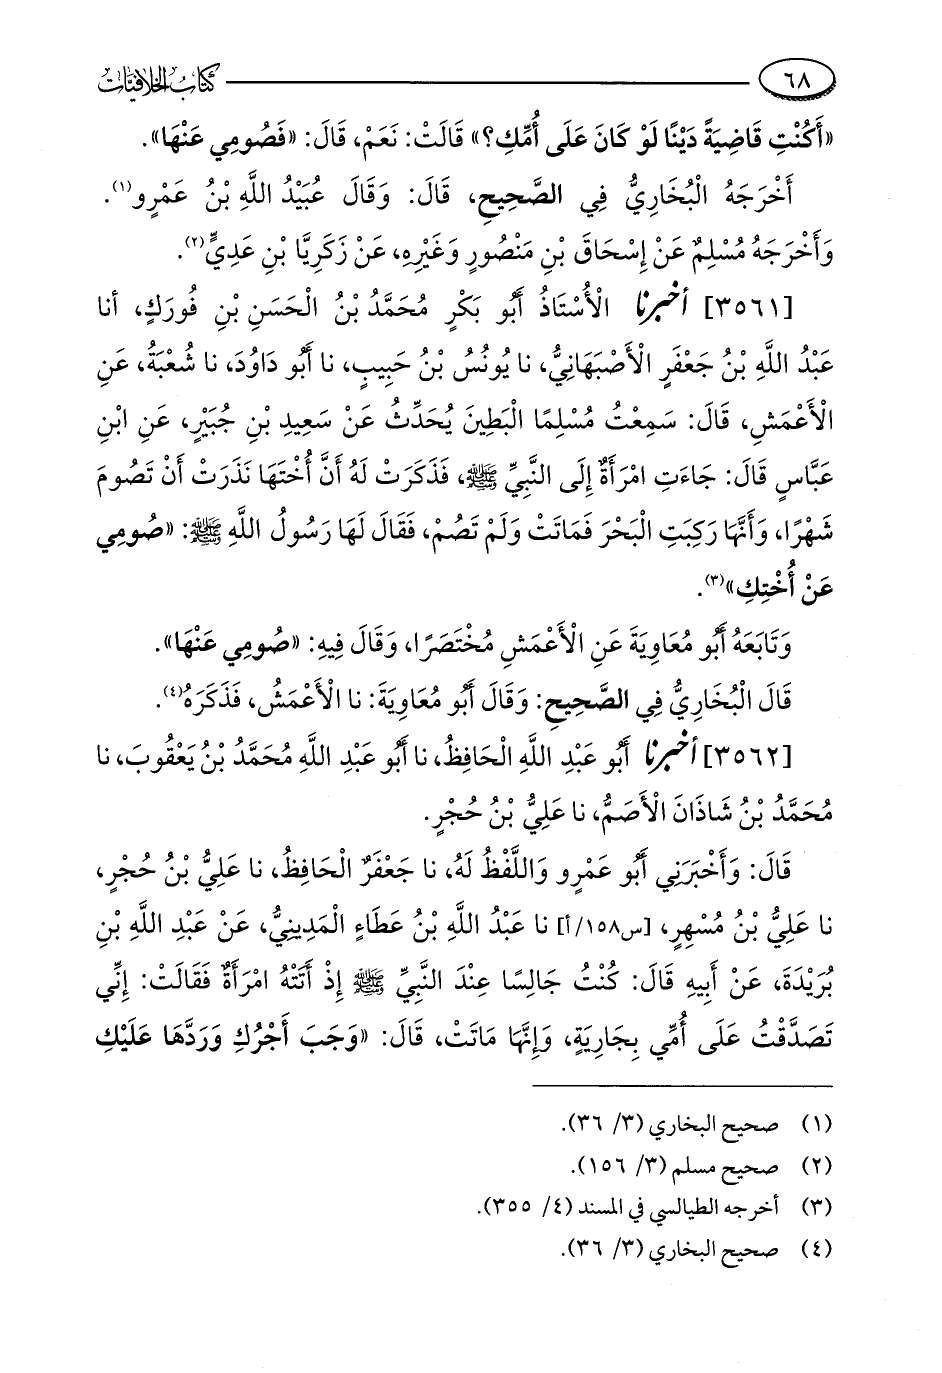 ٦٨ كتاب الخلافيات
«أَكُنْتِ قَاضِيَةً دَيْنًا لَوْ كَانَ عَلَى أُمِّكِ؟» قَالَتْ: نَعَمْ، قَالَ: «فَصُومِي عَنْهَا».
أَخْرَجَهُ الْبُخَارِيُّ فِي الصَّحِيحِ، قَالَ: وَقَالَ عُبَيْدُ اللَّهِ بْنُ عَمْرٍو(١).
وَأَخْرَجَهُ مُسْلِمٌ عَنْ إِسْحَاقَ بْنِ مَنْصُورٍ وَغَيْرِهِ، عَنْ زَكَرِيَّا بْنِ عَدِيٍّ(٢).
[٣٥٦١] أخبرنا الْأُسْتَاذُ أَبُو بَكْرٍ مُحَمَّدُ بْنُ الْحَسَنِ بْنِ فُورَكٍ، أنا
عَبْدُ اللَّهِ بْنُ جَعْفَرٍ الْأَصْبَهَانِيُّ، نا يُونُسُ بْنُ حَبِيبٍ، نا أَبُو دَاوُدَ، نا شُعْبَةُ، عَنِ
الْأَعْمَشِ، قَالَ: سَمِعْتُ مُسْلِمًا الْبَطِينَ يُحَدِّثُ عَنْ سَعِيدِ بْنِ جُبَيْرٍ، عَنِ ابْنِ
عَبَّاسٍ قَالَ: جَاءَتِ امْرَأَةٌ إِلَى النَّبِيِّ ﷺ، فَذَكَرَتْ لَهُ أَنَّ أُخْتَهَا نَذَرَتْ أَنْ تَصُومَ
شَهْرًا، وَأَنَّهَا رَكِبَتِ الْبَحْرَ فَمَاتَتْ وَلَمْ تَصُمْ، فَقَالَ لَهَا رَسُولُ اللَّهِ ﷺ: «صُومِي
عَنْ أُخْتِكِ»(٣).
وَتَابَعَهُ أَبُو مُعَاوِيَةَ عَنِ الْأَعْمَشِ مُخْتَصَرًا، وَقَالَ فِيهِ: «صُومِي عَنْهَا».
قَالَ الْبُخَارِيُّ فِي الصَّحِيحِ: وَقَالَ أَبُو مُعَاوِيَةَ: نا الْأَعْمَشُ، فَذَكَرَهُ(٤).
[٣٥٦٢] أخبرنا أَبُو عَبْدِ اللَّهِ الْحَافِظُ، نا أَبُو عَبْدِ اللَّهِ مُحَمَّدُ بْنُ يَعْقُوبَ، نا
مُحَمَّدُ بْنُ شَاذَانَ الْأَصَمُّ، نا عَلِيُّ بْنُ حُجْرٍ.
قَالَ: وَأَخْبَرَنِي أَبُو عَمْرٍو وَاللَّفْظُ لَهُ، نا جَعْفَرٌ الْحَافِظُ، نا عَلِيُّ بْنُ حُجْرٍ،
نا عَلِيُّ بْنُ مُسْهِرٍ، [س١٥٨/أ] نا عَبْدُ اللَّهِ بْنُ عَطَاءٍ الْمَدِينِيُّ، عَنْ عَبْدِ اللَّهِ بْنِ
بُرَيْدَةَ، عَنْ أَبِيهِ قَالَ: كُنْتُ جَالِسًا عِنْدَ النَّبِيِّ ﷺ إِذْ أَتَتْهُ امْرَأَةٌ فَقَالَتْ: إِنِّي
تَصَدَّقْتُ عَلَى أُمِّي بِجَارِيَةٍ، وَإِنَّهَا مَاتَتْ، قَالَ: «وَجَبَ أَجْرُكِ وَرَدَّهَا عَلَيْكِ
(١) صحيح البخاري (٣/ ٣٦).
(٢) صحيح مسلم (٣/ ١٥٦).
(٣) أخرجه الطيالسي في المسند (٤/ ٣٥٥).
(٤) صحيح البخاري (٣/ ٣٦).